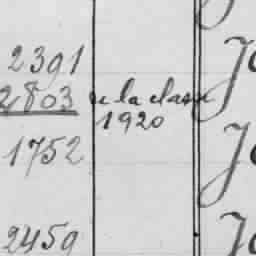 2391
2803 de la classe
1920
1752
2459